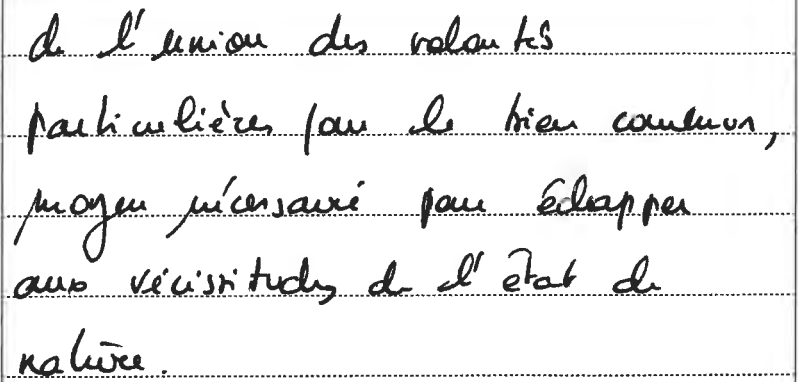 de l'union des volontés
particulières pour le bien commun,
moyen nécessaire pour échapper
aux vécissitudes de l'état de
nature.